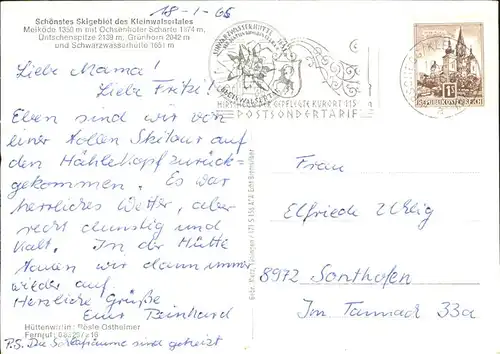 18-1-65
Schönstes Skigebiet des Kleinwalsertales
Melköde 1350 m mit Ochsenhofer Scharte 1874 m,
Üntschenspitze 2139 m, Grünhorn 2042 m
und Schwarzwasserhütte 1651 m
Liebe Mama!
Liebe Fritzi!
Eben sind wir von
einer tollen Skitour auf
den Hählekopf zurück-
gekommen. Es war
herrliches Wetter, aber
recht dunstig und
kalt. In der Hütte
tauen wir dann immer
wieder auf
Herzliche Grüße
Euer Reinhard
Hüttenwirtin: Rösle Ostheimer
Fernruf:
P.S. Die Schlafräume sind geheizt
HIRSCHEGG DER GEPFLEGTE KURORT
POSTSONDERTARIF
1S
REPUBLIK ÖSTERREICH
Frau
Elfriede Uhlig
8972 Sonthofen
Im Tannach 33a